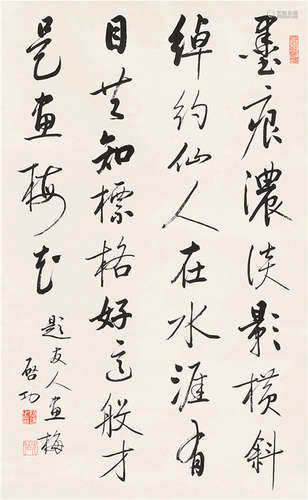 墨痕濃淡影橫斜
綽約仙人在水涯有
目共知標格好這般才
是畫梅花
題友人畫梅
啓功